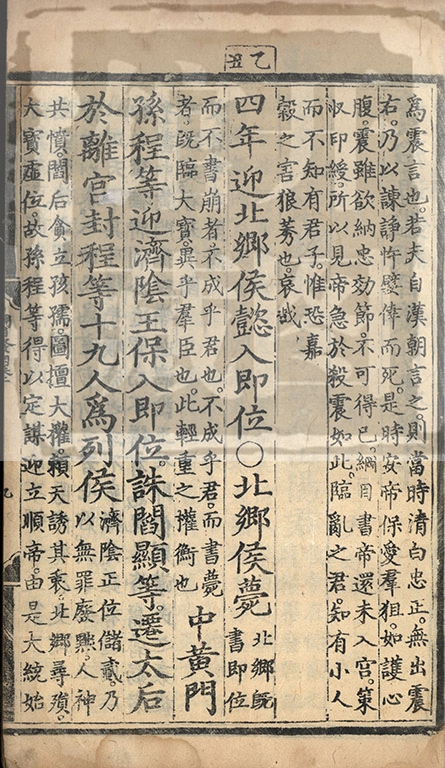 乙丑
爲震言也。若夫自漢朝言之。則當時清白忠正。無出震
右。乃以諫諍忤嬖倖而死。是時安帝保愛羣狙。如護心
腹。震雖欲納忠効節。不可得已。綱目書帝還未入宮。策
収印綬。所以見帝急於殺震如此。臨亂之君。知有小人
而不知有君子。惟恐嘉
穀之害狼莠也。哀哉
四年迎北鄉侯懿入即位〇北鄉侯薨
北鄉既
書即位
而不書崩者。不成乎君也。不成乎君。而書薨
者。既臨大寶。異乎羣臣也。此輕重之權衡也
中黃門
孫程等迎濟陰王保入即位。誅閻顯等。遷太后
於離宮封程等十九人爲列侯
濟陰正位儲貳。乃
以無罪廢黜。人神
共憤閻后貪立孩孺。圖擅大權。賴天誘其衷。北鄉尋殞。
大寶虛位。故孫程等得以定謀迎立順帝。由是大統始
九